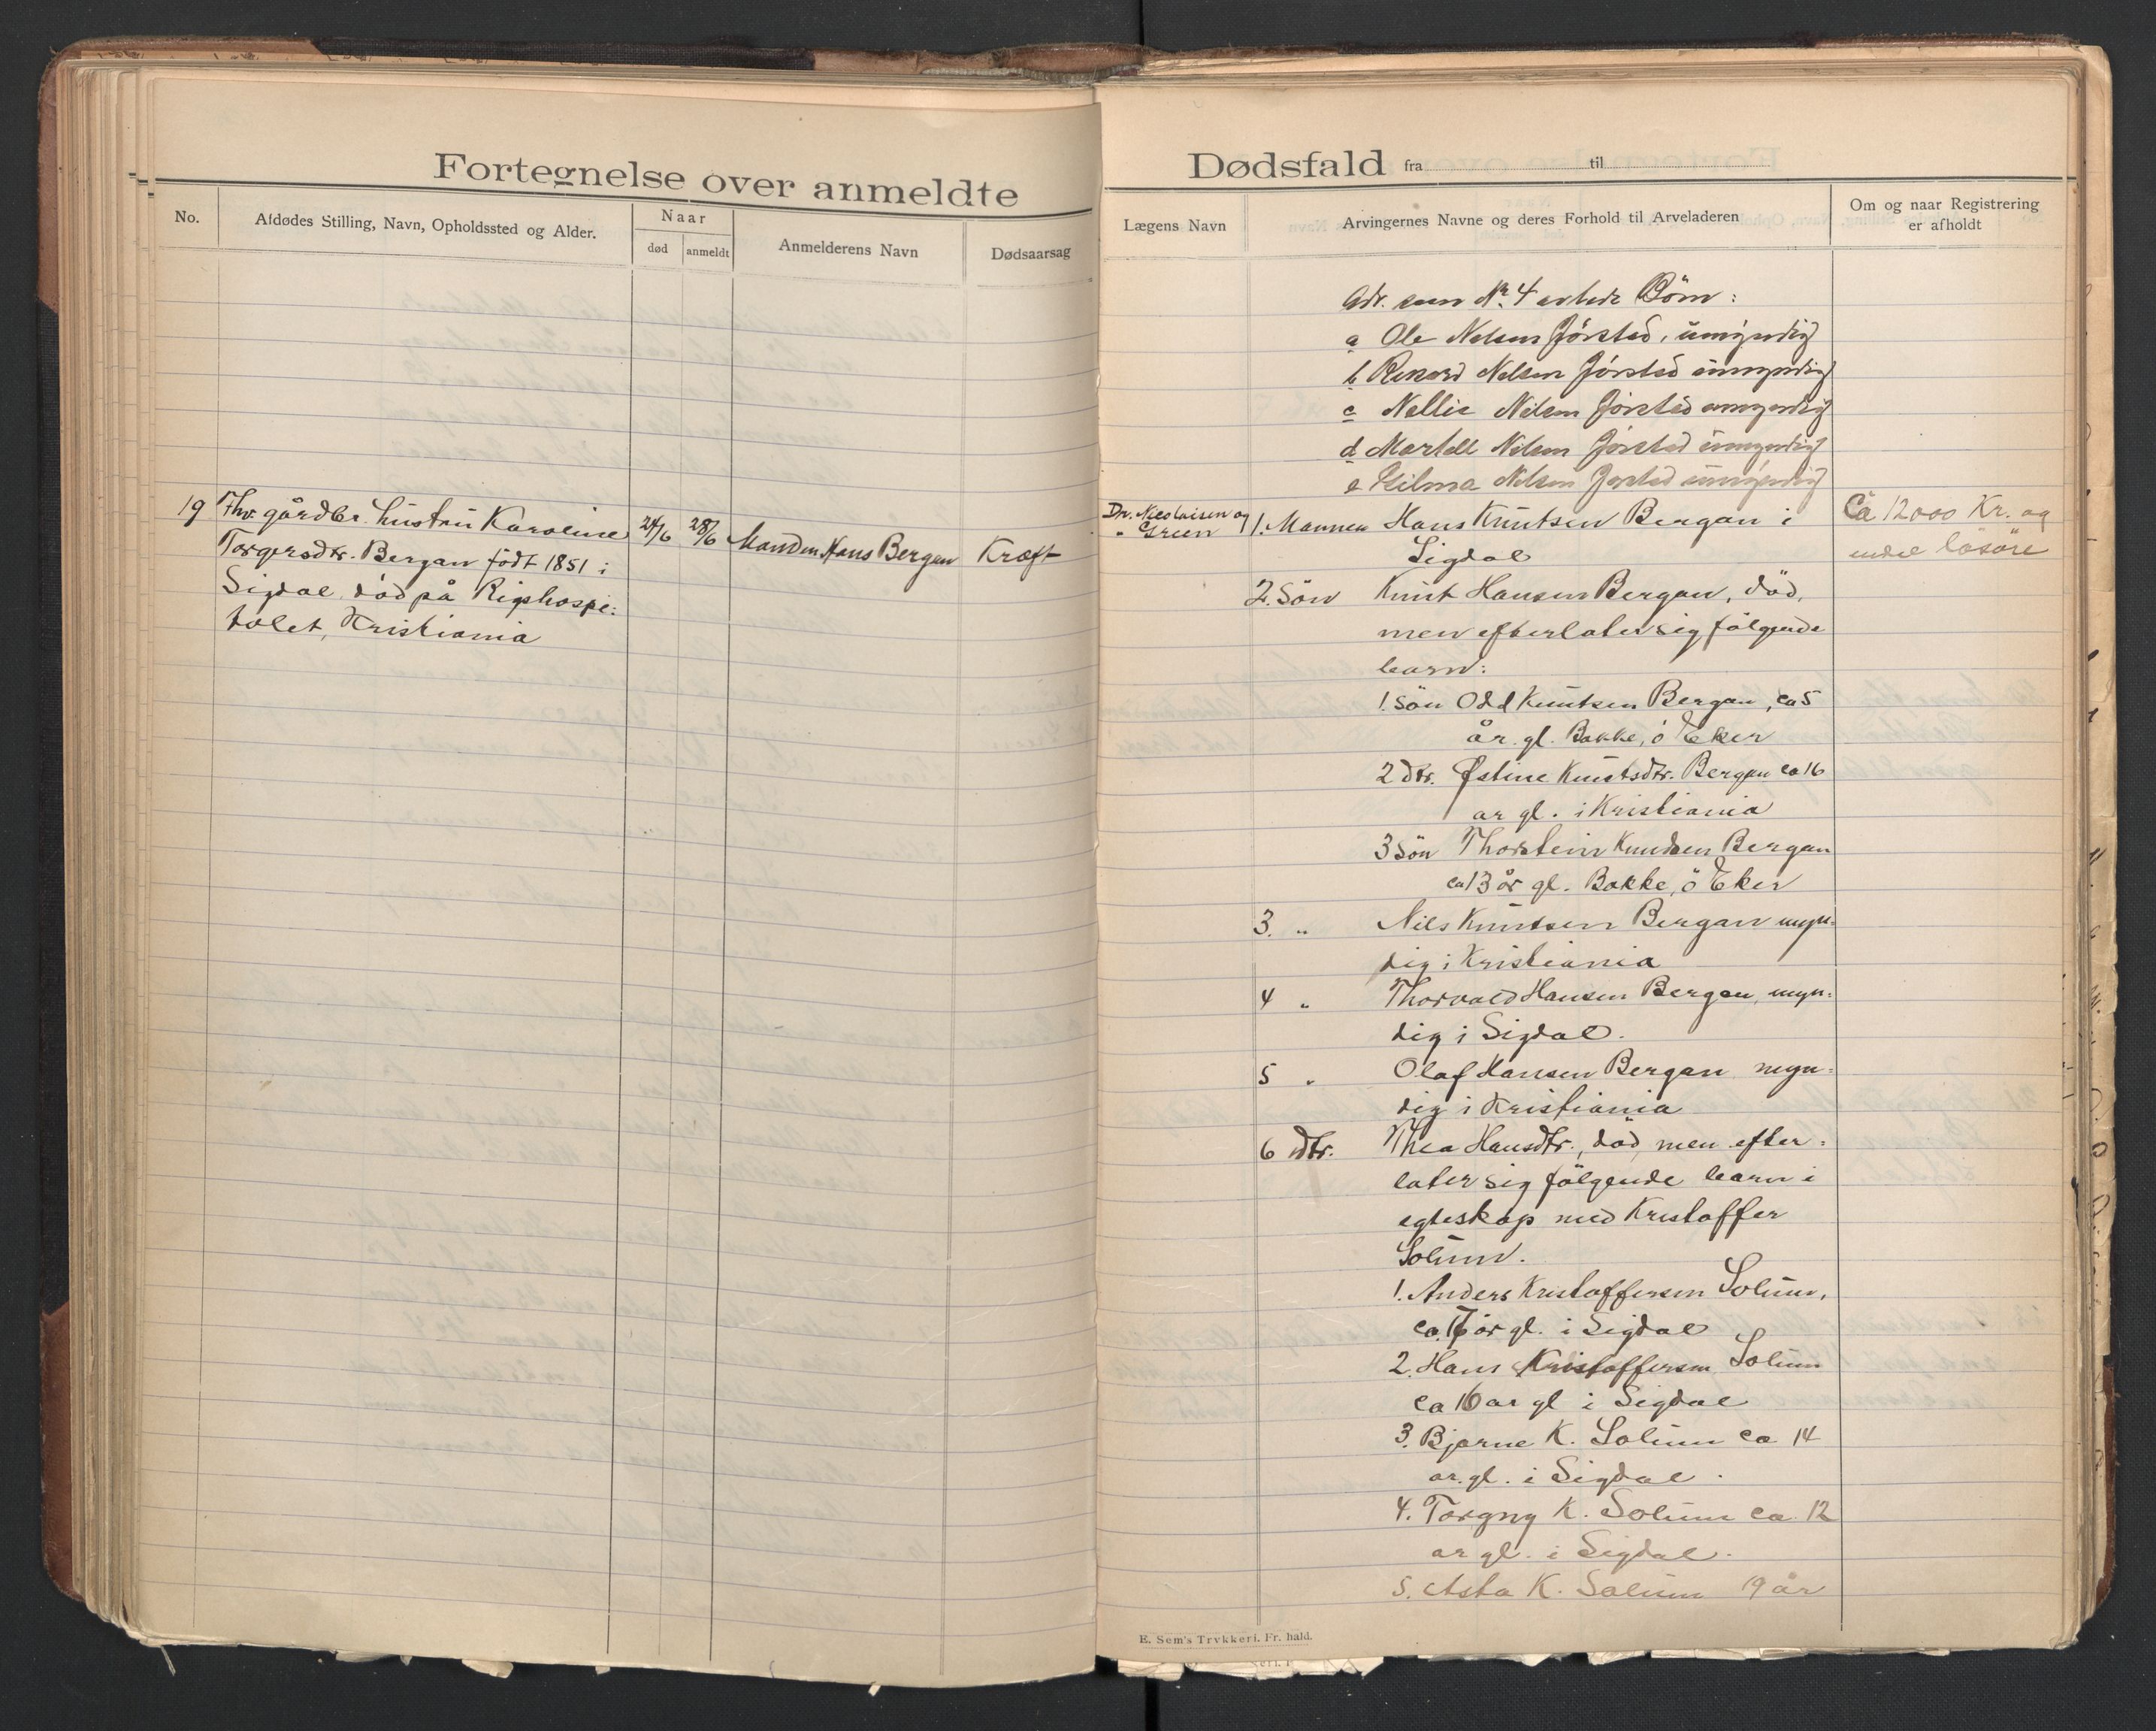 Fortegnelse over anmeldte
No.
Afdødes Stilling, Navn, Opholdssted og Alder.
Naar
død
anmeldt
Anmelderens Navn
Dødsaarsag
19
Fhv. gårdbr. hustru Karoline
Torgersdtr. Bergan født 1851 i
Sigdal, død på Rigshospi-
talet, Kristiania
24/6
28/6
Manden Hans Bergan
Kræft
Dødsfald fra til
Lægens Navn
Arvingernes Navne og deres Forhold til Arveladeren
Om og naar Registrering
er afholdt
Adr. som Nr. 4 Børn:
a Ole Nelsen Jórstad, umyndig
b Nelsen Jórstad umyndig
c Nellie Nelsen Jórstad umyndig
d Martell Nelsen Jórstad umyndig
e Hilma Nelsen Jorstad umyndig
Dr. Nicolaisen og
" Green
1. Mannen Hans Knutsen Bergan i
Sigdal
Ca 12000 Kr. og
endel løsøre
2. Søn Knut Hansen Bergan, død,
men efterlater sig følgende
barn:
1. Søn Odd Knutsen Bergan, ca 5
år gl. Bakke, ö Eker
2 dtr. Østine Knutsdtr. Bergan ca 16
ar gl. i Kristiania
3 Søn Thorstein Knudsen Bergan
ca 13 år gl. Bakke, ö Eker
3. " Nils Knutsen Bergan myn-
dig i Kristiania
4 " Thorvald Hansen Bergan, myn-
dig i Sigdal.
5 " Olaf Hansen Bergan myn-
dig i Kristiania
6 dtr. Thea Hansdtr., død, men efter-
later sig følgende barn i
egteskap med Kristoffer
Solum.
1. Anders Kristoffersen Solum,
ca. 17 år gl. i Sigdal
2. Hans Kristoffersen Solum
ca 16 ar gl i Sigdal
3. Bjarne K. Solum ca 14
ar. gl. i Sigdal.
4. Torgny K. Solum ca. 12
ar gl. i Sigdal.
5. Asta K. Solum 19 år
E. Sem's Trykkeri. Fr. hald.